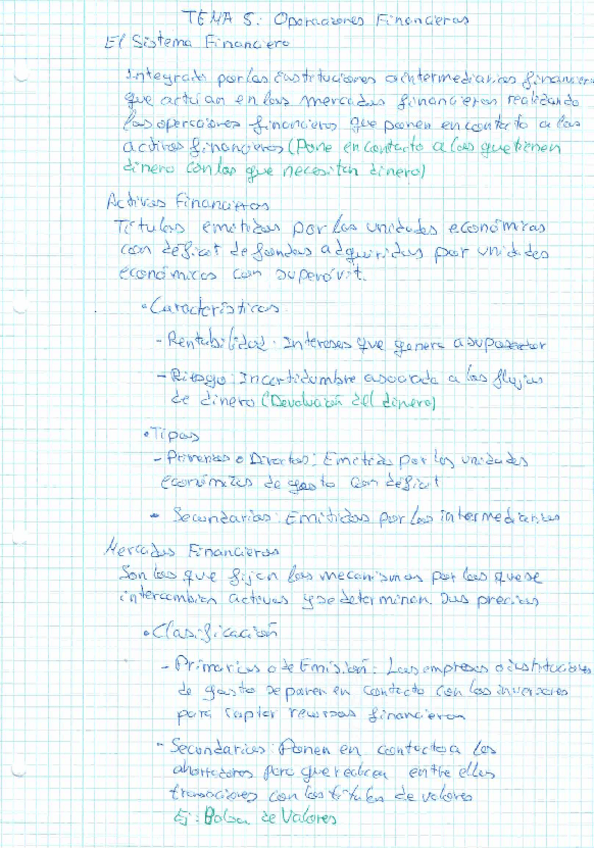 TEMA 5: Operaciones Financieras
El Sistema Financiero
Integrado por las instituciones o intermediarios financieros
que actúan en los mercados financieros realizando
las operaciones financieras que ponen en contacto a los
activos financieros (Pone en contacto a los que tienen
dinero con los que necesitan dinero)
Activos Financieros
Títulos emitidos por las unidades económicas
con déficit de fondos adquiridos por unidades
económicas con superávit.
• Características
- Rentabilidad: Intereses que genera a su poseedor
- Riesgo: Incertidumbre asociada a los flujos
de dinero (Devolución del dinero)
• Tipos
- Primarios o Directos: Emitidos por las unidades
económicas de gasto con déficit
- Secundarios: Emitidos por los intermediarios
Mercados Financieros
Son los que fijan los mecanismos por los que se
intercambian activos y se determinan sus precios
• Clasificación
- Primarios o de Emisión: Las empresas o instituciones
de gasto se ponen en contacto con los inversores
para captar recursos financieros
- Secundarios: Ponen en contacto a los
ahorradores para que realicen entre ellos
transaciones con los títulos de valores
Ej: Bolsa de Valores